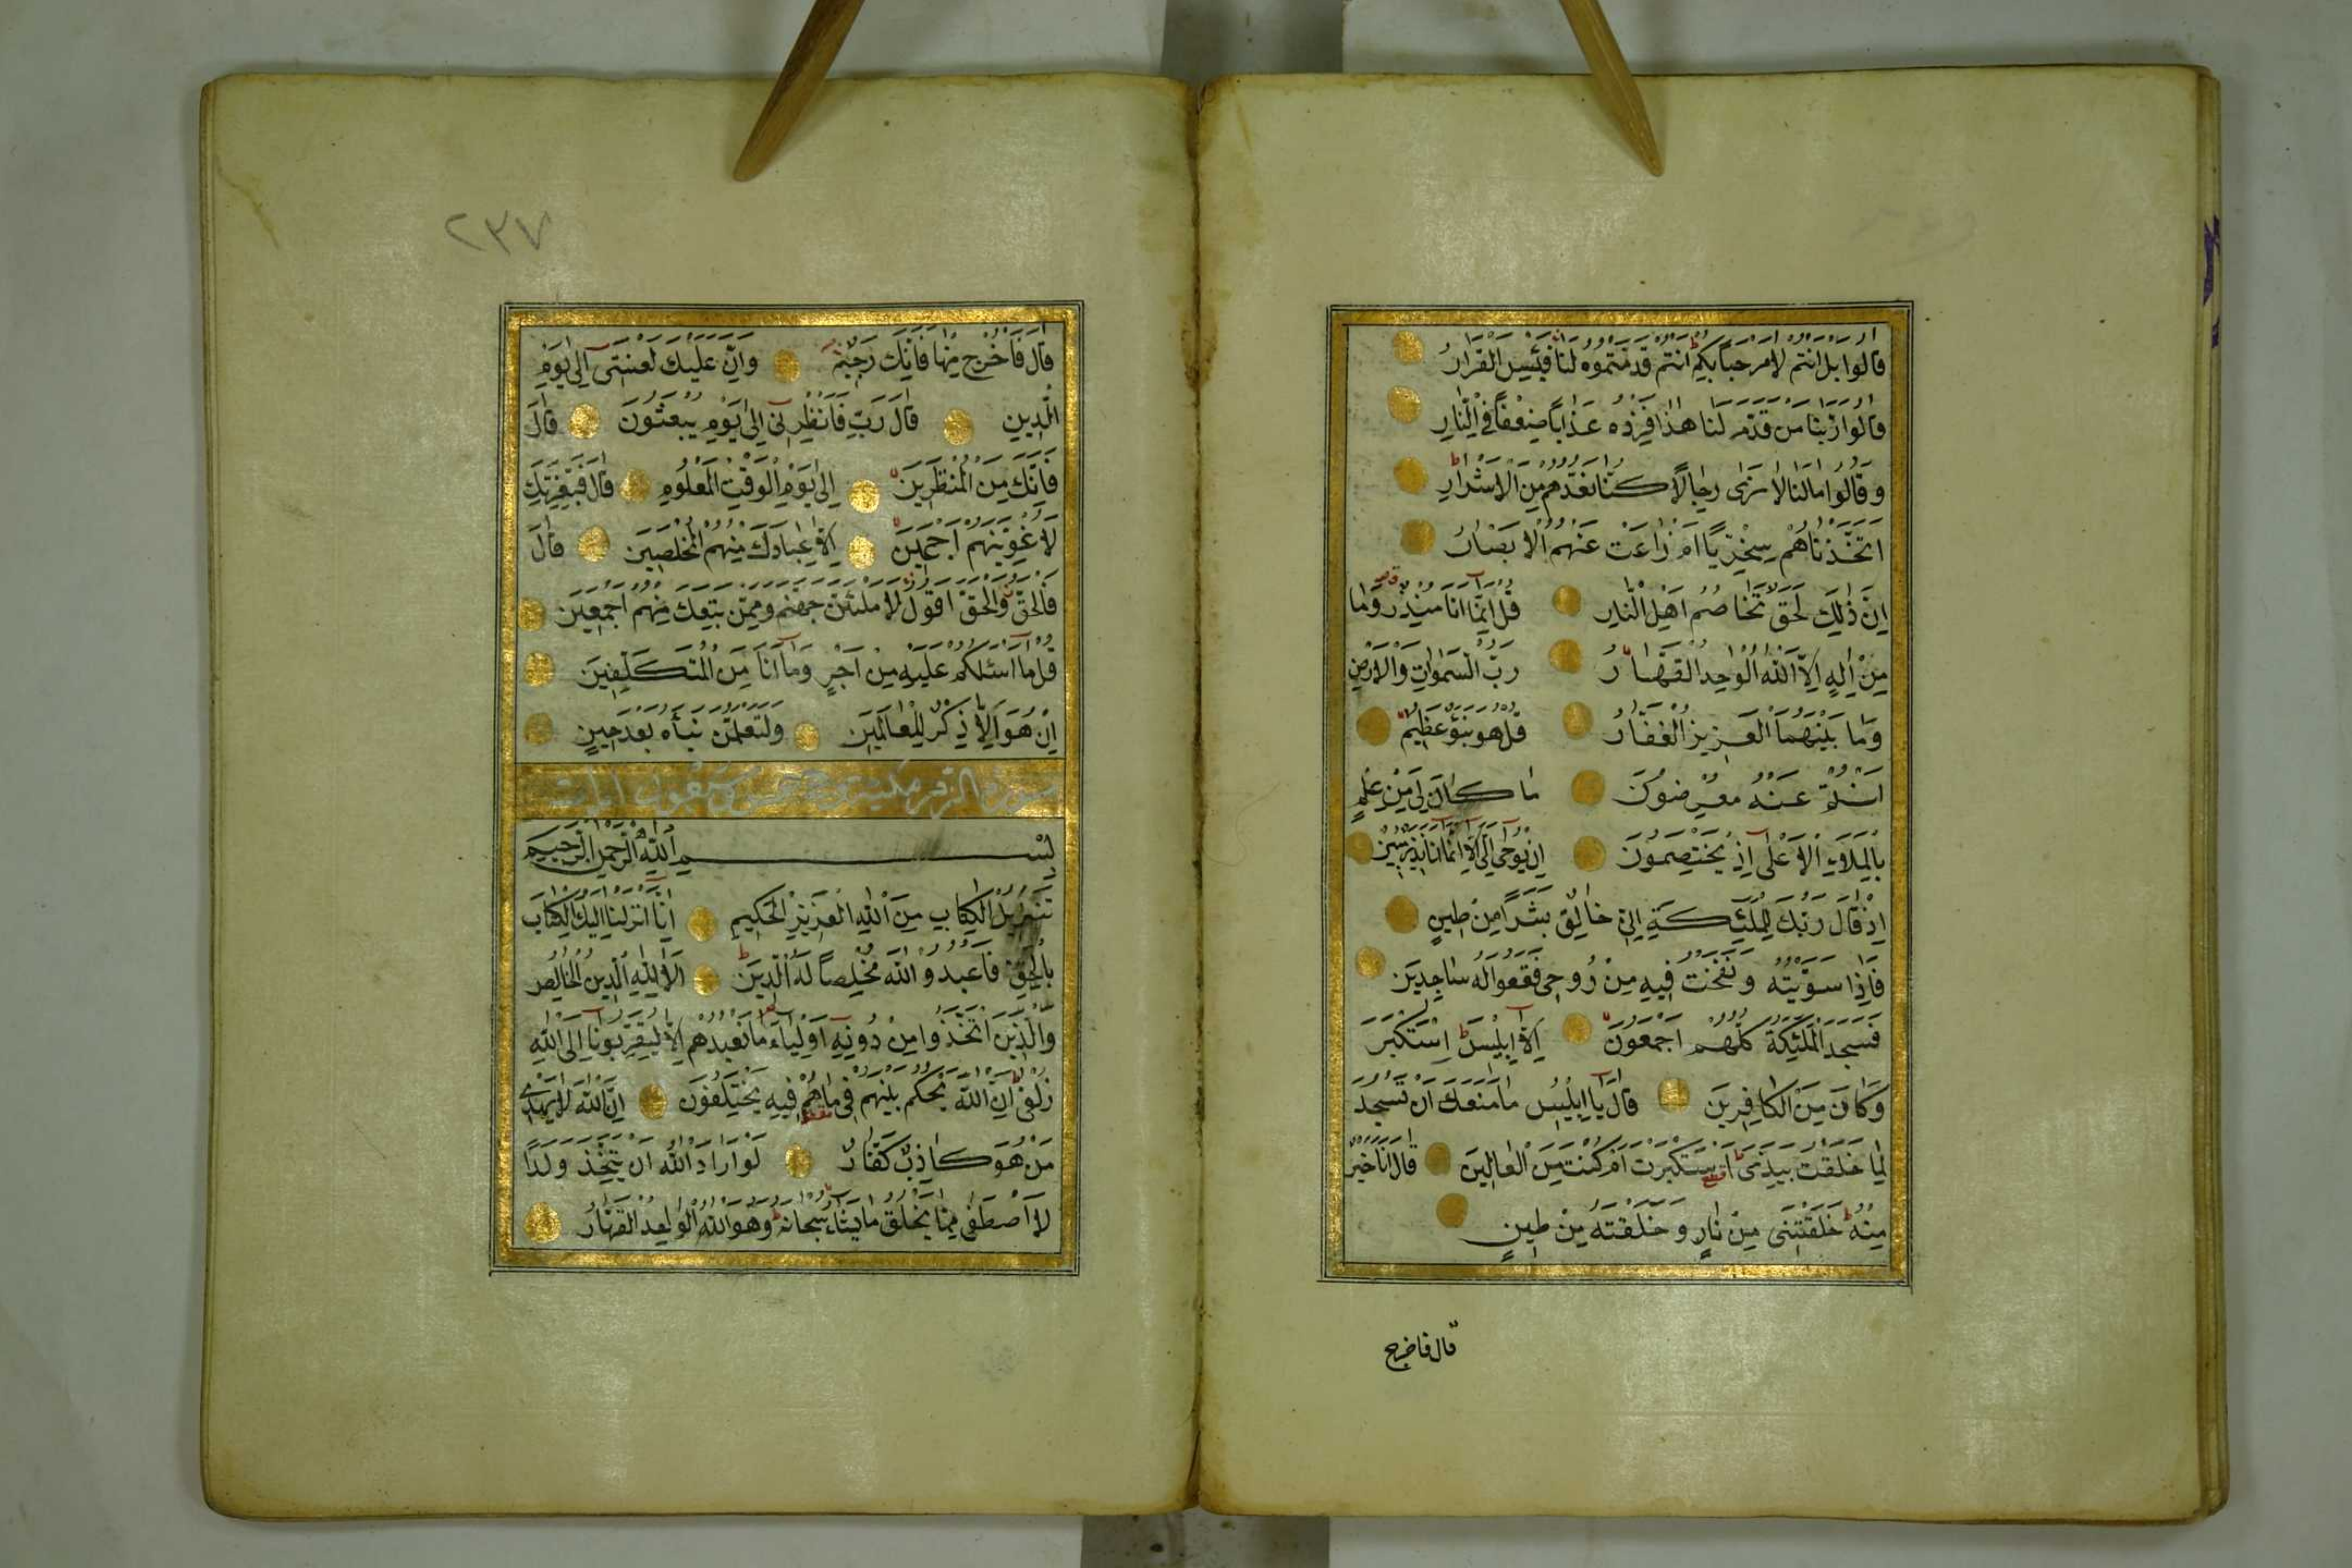 قَالُوا بَلْ اَنْتُمْ لَا مَرْحَبًا بِكُمْ اَنْتُمْ قَدَّمْتُمُوهُ لَنَا فَبِئْسَ الْقَرَارُ
قَالُوا رَبَّنَا مَنْ قَدَّمَ لَنَا هٰذَا فَزِدْهُ عَذَابًا ضِعْفًا فِي النَّارِ
وَقَالُوا مَا لَنَا لَا نَرٰى رِجَالًا كُنَّا نَعُدُّهُمْ مِنَ الْاَشْرَارِ
اَتَّخَذْنَاهُمْ سِخْرِيًّا اَمْ زَاغَتْ عَنْهُمُ الْاَبْصَارُ
اِنَّ ذٰلِكَ لَحَقٌّ تَخَاصُمُ اَهْلِ النَّارِ قُلْ اِنَّمَا اَنَا مُنْذِرٌ وَمَا
مِنْ اِلٰهٍ اِلَّا اللّٰهُ الْوٰحِدُ الْقَهَّارُ رَبُّ السَّمٰوَاتِ وَالْاَرْضِ
وَمَا بَيْنَهُمَا الْعَزِيزُ الْغَفَّارُ قُلْ هُوَ نَبَؤٌ عَظِيمٌ
اَنْتُمْ عَنْهُ مُعْرِضُونَ مَا كَانَ لِيَ مِنْ عِلْمٍ
بِالْمَلَاءِ الْاَعْلٰى اِذْ يَخْتَصِمُونَ اِنْ يُوحٰى اِلَيَّ اِلَّا اَنَّمَا اَنَا نَذِيرٌ مُبِينٌ
اِذْ قَالَ رَبُّكَ لِلْمَلٰئِكَةِ اِنِّي خَالِقٌ بَشَرًا مِنْ طِينٍ
فَاِذَا سَوَّيْتُهُ وَنَفَخْتُ فِيهِ مِنْ رُوحِي فَقَعُوا لَهُ سَاجِدِينَ
فَسَجَدَ الْمَلٰئِكَةُ كُلُّهُمْ اَجْمَعُونَ اِلَّا اِبْلِيسَ اِسْتَكْبَرَ
وَكَانَ مِنَ الْكَافِرِينَ قَالَ يَا اِبْلِيسُ مَا مَنَعَكَ اَنْ تَسْجُدَ
لِمَا خَلَقْتُ بِيَدَيَّ اَسْتَكْبَرْتَ اَمْ كُنْتَ مِنَ الْعَالِينَ قَالَ اَنَا خَيْرٌ
مِنْهُ خَلَقْتَنِي مِنْ نَارٍ وَخَلَقْتَهُ مِنْ طِينٍ
قال فاخرج
٢٣٧
قَالَ فَاخْرُجْ مِنْهَا فَاِنَّكَ رَجِيمٌ وَاِنَّ عَلَيْكَ لَعْنَتِي اِلٰى يَوْمِ
الدِّينِ قَالَ رَبِّ فَاَنْظِرْنِي اِلٰى يَوْمِ يُبْعَثُونَ قَالَ
فَاِنَّكَ مِنَ الْمُنْظَرِينَ اِلٰى يَوْمِ الْوَقْتِ الْمَعْلُومِ قَالَ فَبِعِزَّتِكَ
لَاُغْوِيَنَّهُمْ اَجْمَعِينَ اِلَّا عِبَادَكَ مِنْهُمُ الْمُخْلَصِينَ قَالَ
فَالْحَقُّ وَالْحَقَّ اَقُولُ لَاَمْلَئَنَّ جَهَنَّمَ وَمِمَّنْ تَبِعَكَ مِنْهُمْ اَجْمَعِينَ
قُلْ مَا اَسْئَلُكُمْ عَلَيْهِ مِنْ اَجْرٍ وَمَا اَنَا مِنَ الْمُتَكَلِّفِينَ
اِنْ هُوَ اِلَّا ذِكْرٌ لِلْعَالَمِينَ وَلَتَعْلَمُنَّ نَبَأَهُ بَعْدَ حِينٍ
سورة الزمر مكية
بِسْمِ اللّٰهِ الرَّحْمٰنِ الرَّحِيمِ
تَنْزِيلُ الْكِتَابِ مِنَ اللّٰهِ الْعَزِيزِ الْحَكِيمِ اِنَّا اَنْزَلْنَا اِلَيْكَ الْكِتَابَ
بِالْحَقِّ فَاعْبُدُو اللّٰهَ مُخْلِصًا لَهُ الدِّينَ اَلَا لِلّٰهِ الدِّينُ الْخَالِصُ
وَالَّذِينَ اتَّخَذُوا مِنْ دُونِهِ اَوْلِيَاءَ مَا نَعْبُدُهُمْ اِلَّا لِيُقَرِّبُونَا اِلَى اللّٰهِ
زُلْفٰى اِنَّ اللّٰهَ يَحْكُمُ بَيْنَهُمْ فِي مَا هُمْ فِيهِ يَخْتَلِفُونَ اِنَّ اللّٰهَ لَا يَهْدِي
مَنْ هُوَ كَاذِبٌ كَفَّارٌ لَوْ اَرَادَ اللّٰهُ اَنْ يَتَّخِذَ وَلَدًا
لَاصْطَفٰى مِمَّا يَخْلُقُ مَا يَشَاءُ سُبْحَانَهُ وَهُوَ اللّٰهُ الْوَاحِدُ الْقَهَّارُ